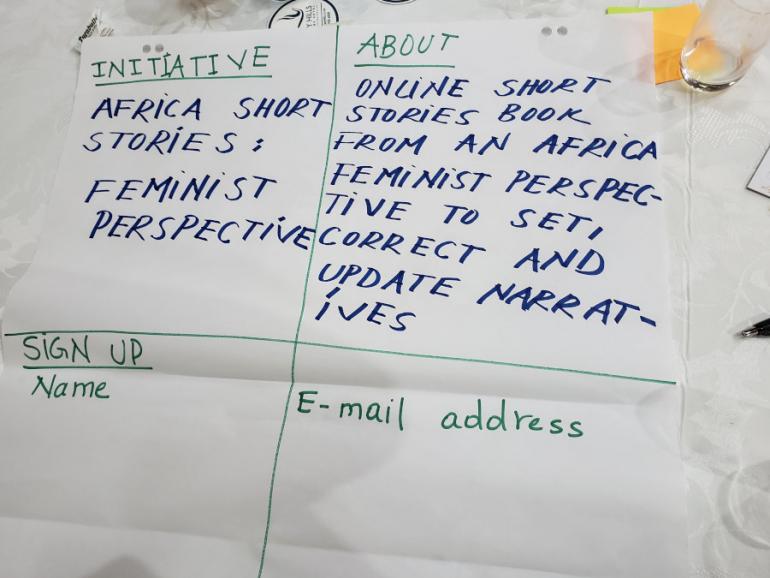 INITIATIVE
AFRICA SHORT
STORIES:
FEMINIST
PERSPECTIVE
ABOUT
ONLINE SHORT
STORIES BOOK
FROM AN AFRICA
FEMINIST PERSPEC-
TIVE TO SET,
CORRECT AND
UPDATE NARRAT-
IVES
SIGN UP
Name
E-mail address